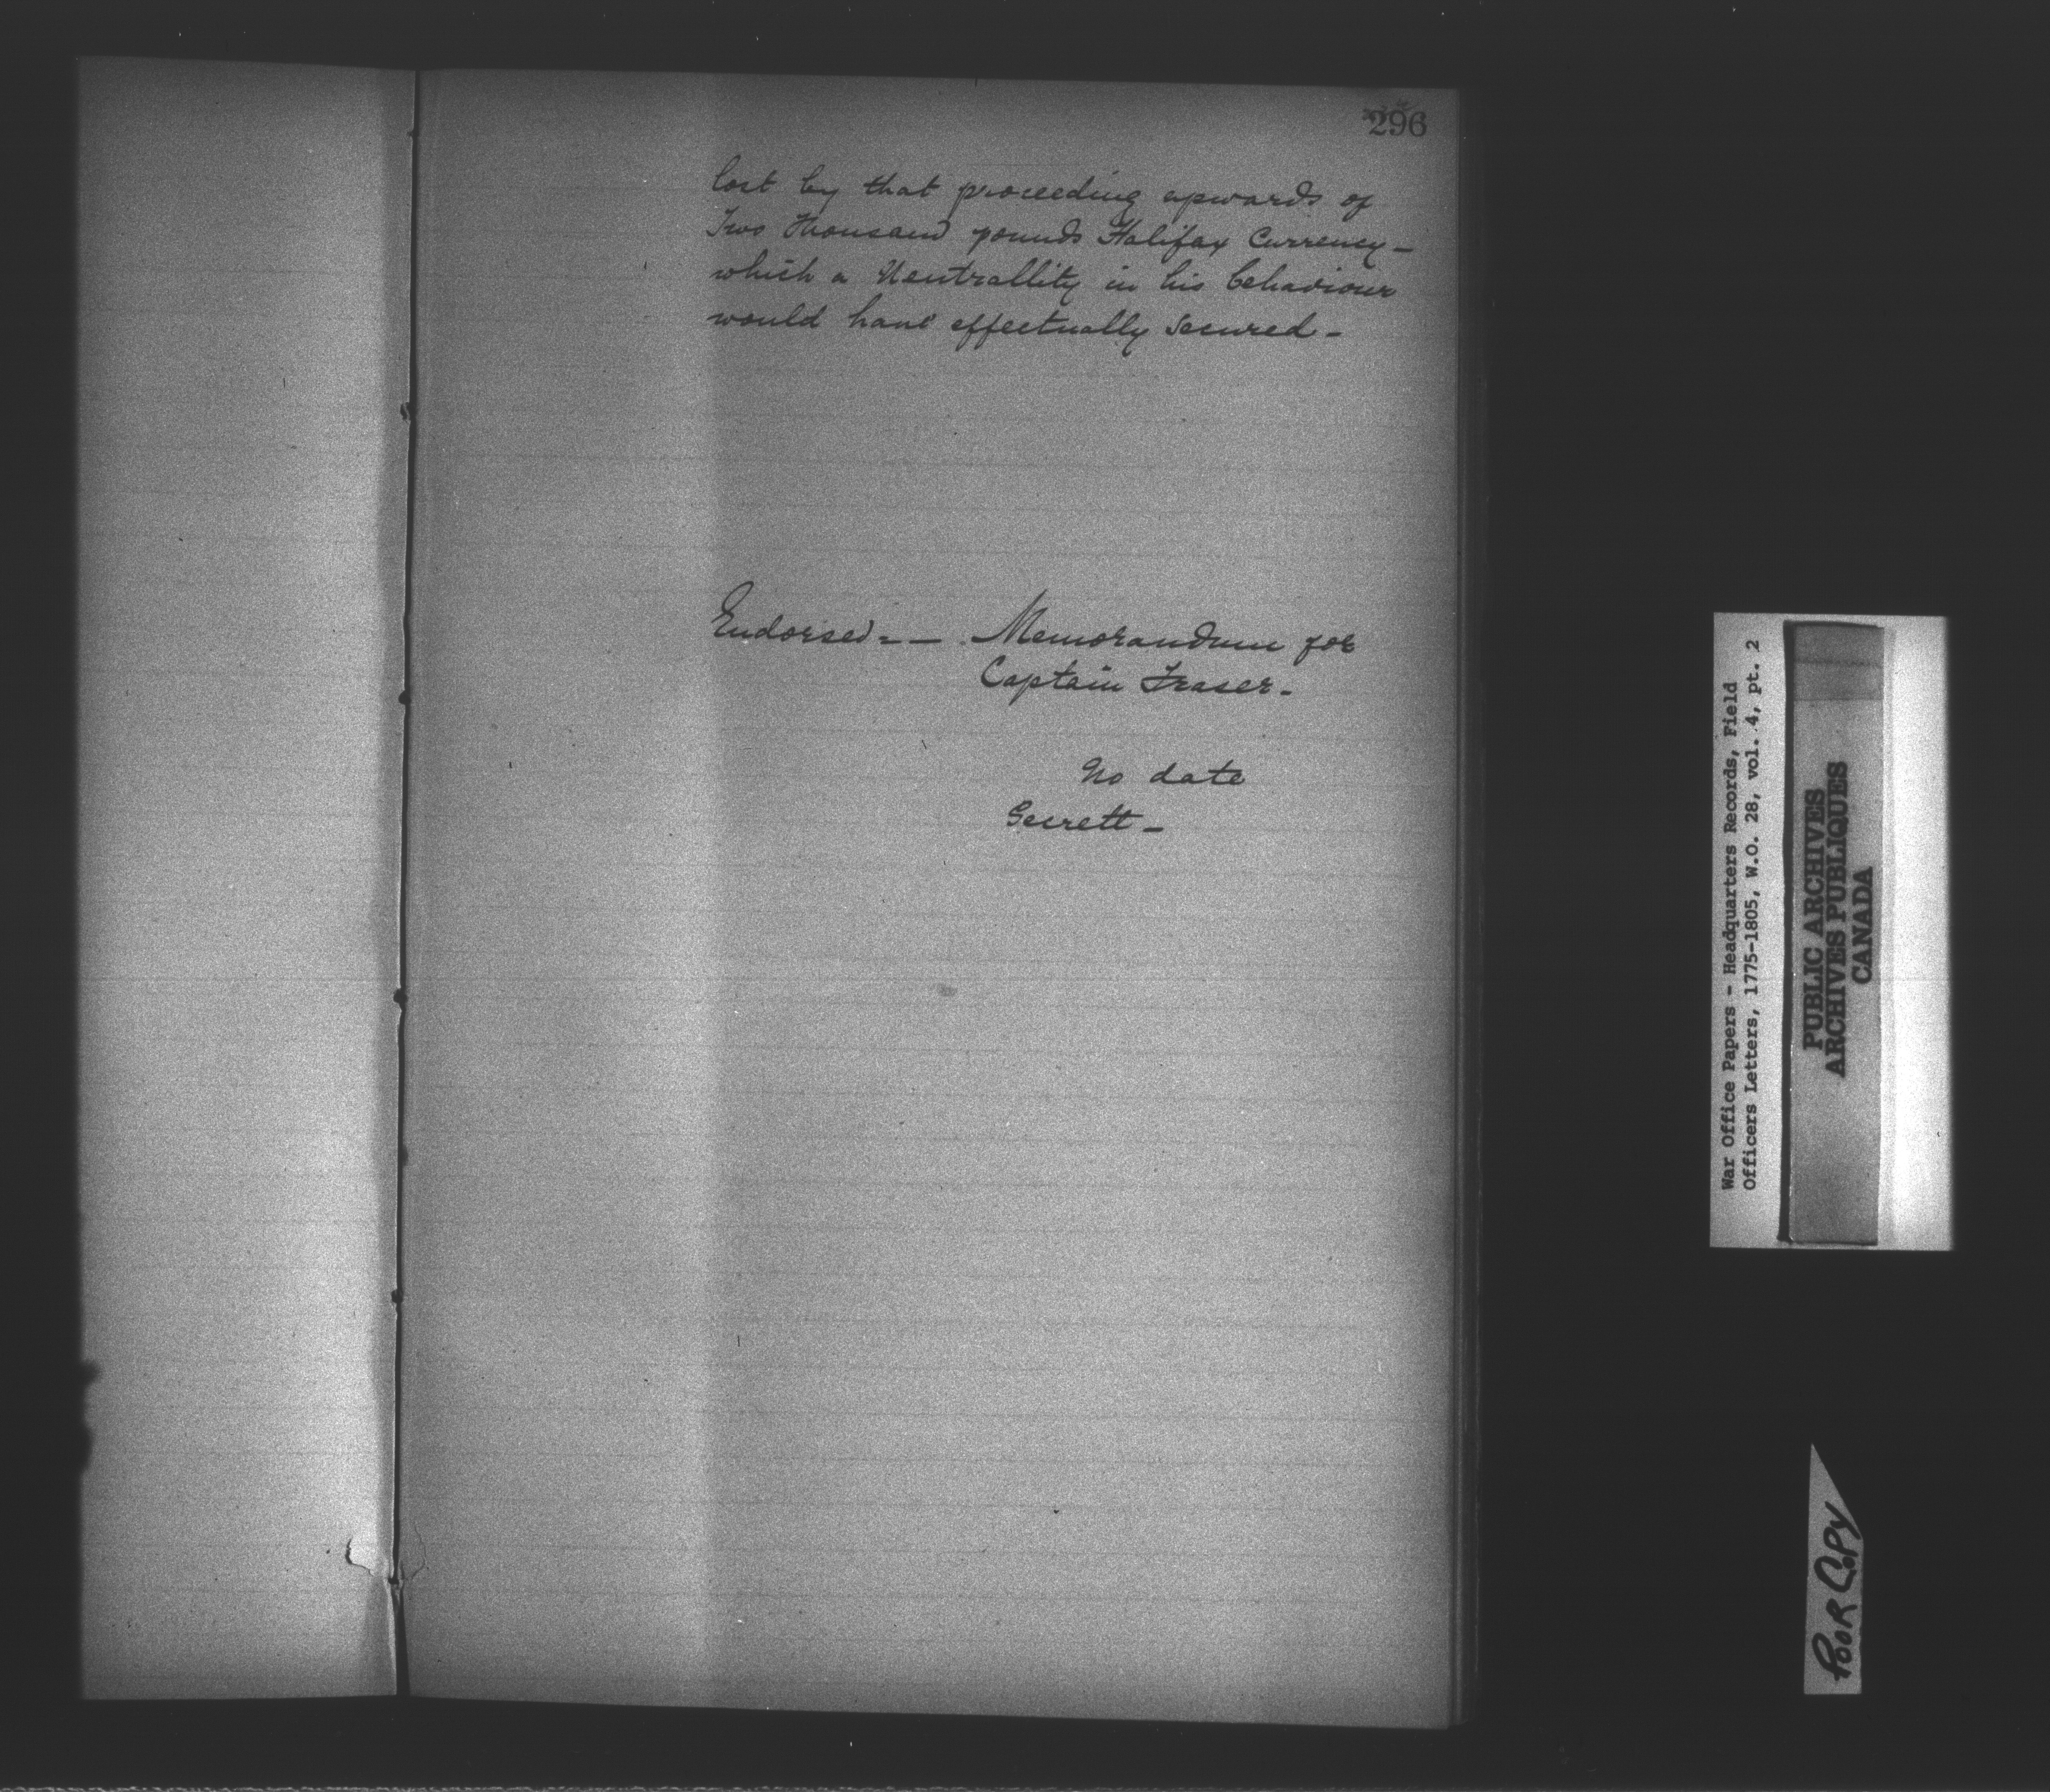 296
lost by that proceeding upwards of
Two thousand pounds Halifax Currency –
which a Neutrallity in his behaviour
would have effectually secured –
Endorsed = – Memorandum for
Captain Fraser –
No date
–
War Office Papers - Headquarters Records, Field
Officers Letters, 1775-1805, W.O. 28, vol. 4, pt. 2
PUBLIC ARCHIVES
ARCHIVES PUBLIQUES
CANADA
POOR COPY